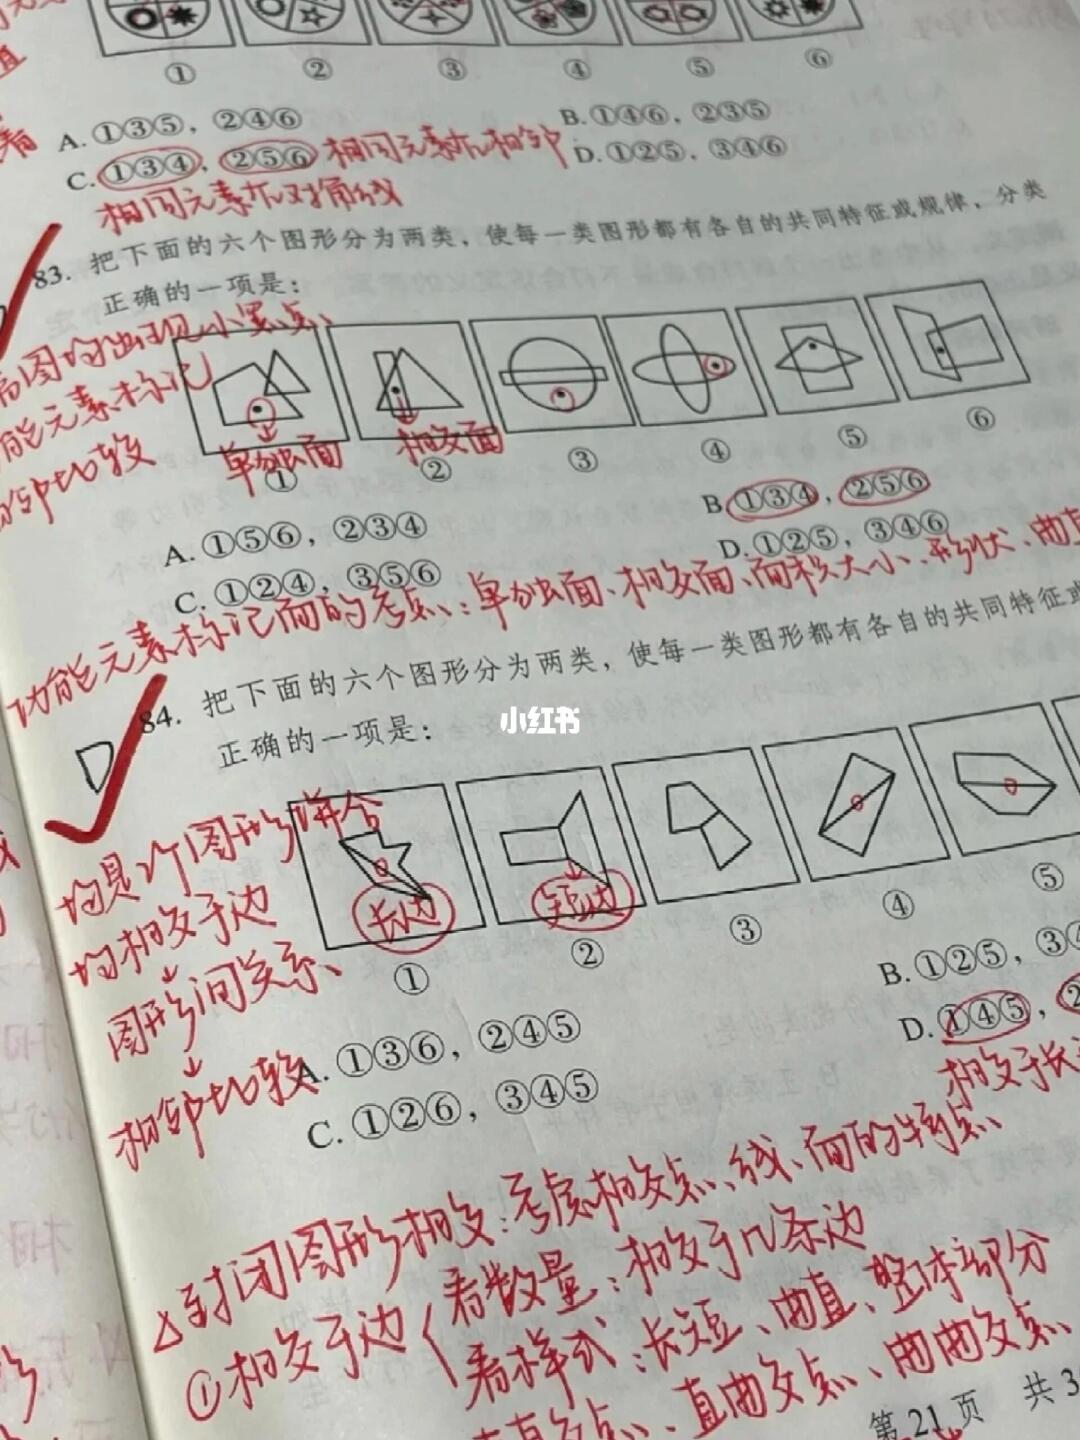 ① ② ③ ④ ⑤ ⑥
A. ①③⑤，②④⑥
B. ①④⑥，②③⑤
C. ①③④，②⑤⑥ 相同元素在相邻
D. ①②⑤，③④⑥
相同元素在对角线
83. 把下面的六个图形分为两类，使每一类图形都有各自的共同特征或规律，分类
正确的一项是：
图均出现小黑点、
能元素标记
比较
单独面
相交面
① ② ③ ④ ⑤ ⑥
A. ①⑤⑥，②③④
B. ①③④，②⑤⑥
C. ①②④，③⑤⑥
D. ①②⑤，③④⑥
功能元素标记面的考点：单独面、相交面、面积大小、形状、曲直
84. 把下面的六个图形分为两类，使每一类图形都有各自的共同特征或
正确的一项是：
小红书
均是2个图形拼合
均相交于边
图形间关系、
相邻比较
长边
短边
① ② ③ ④ ⑤
A. ①③⑥，②④⑤
B. ①②⑤，③④
C. ①②⑥，③④⑤
D. ①④⑤，②
相交于长
△封闭图形相交：考虑相交点、线、面的特点
①相交于边
看数量：相交于几条边
看样式：长短、曲直、整体部分
直曲交点、曲曲交点
第 21 页 共 3